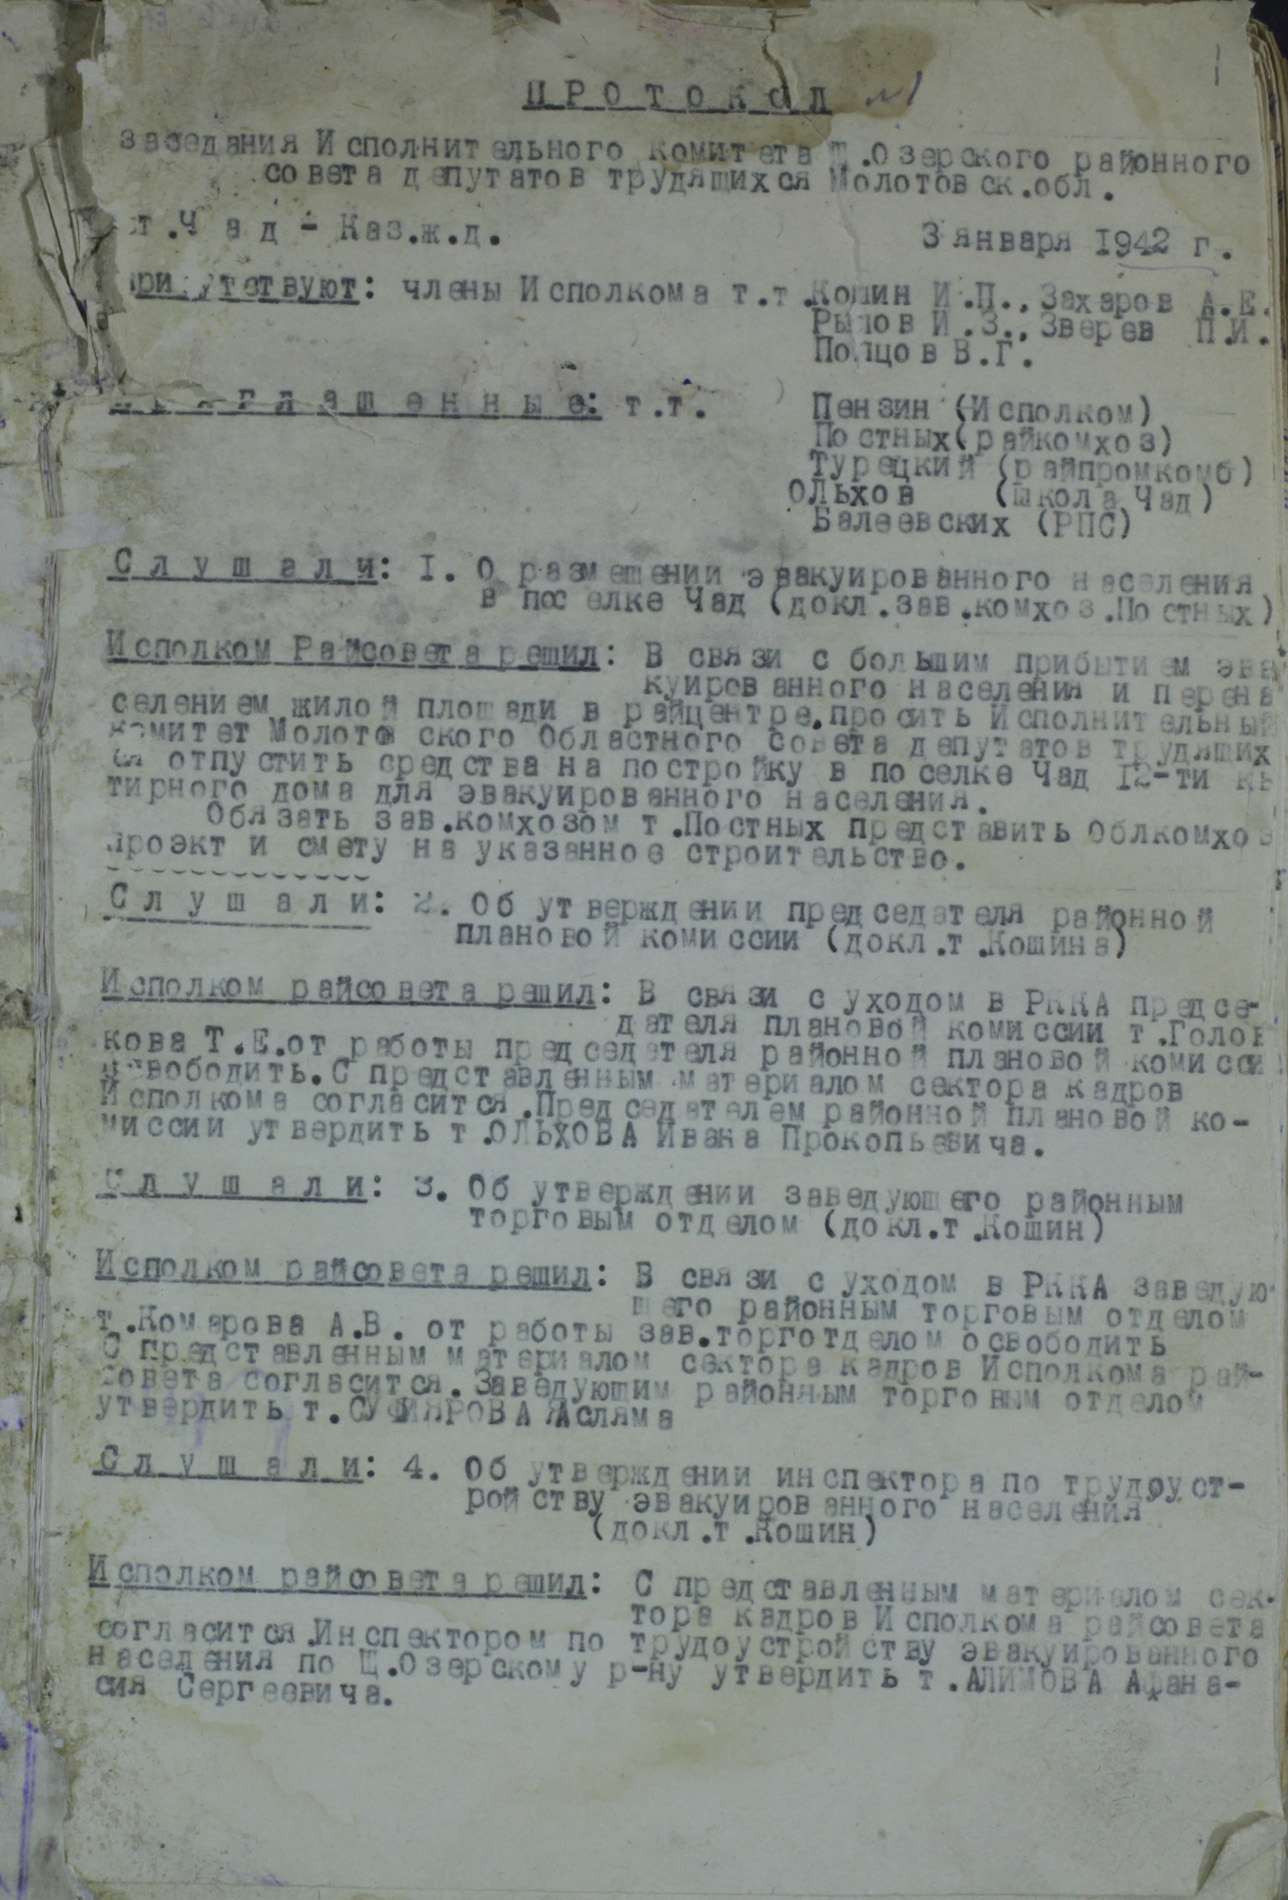 1
ПРОТОКОЛ №1
заседания Исполнительного комитета Щ.Озерского районного
совета депутатов трудящихся Молотовск.обл.
ст.Чад - Каз.ж.д.
3 января 1942 г.
Присутствуют: члены Исполкома т.т.Кошин И.П., Захаров А.Е.
Рылов И.З., Зверев П.И.
Попцов В.Г.
Приглашенные: т.т.
Пензин (Исполком)
Постных(райкомхоз)
Турецкий (райпромкомб)
Ольхов (школа Чад)
Балеевских (РПС)
Слушали: 1. О размещении эвакуированного населения
в поселке Чад (докл.зав.комхоз.Постных)
Исполком Райсовета решил: В связи с большим прибытием эва
куированного населения и перена
селением жилой площади в райцентре.просить Исполнительный
комитет Молотовского Областного совета депутатов трудящих
ся отпустить средства на постройку в поселке Чад 12-ти кв
тирного дома для эвакуированного населения.
Обязать зав.комхозом т.Постных представить Облкомхоз
проэкт и смету на указанное строительство.
Слушали: 2. Об утверждении председателя районной
плановой комиссии (докл.т.Кошина)
Исполком райсовета решил: В связи с уходом в РККА председ-
дателя плановой комиссии т.Голов
кова Т.Е.от работы председателя районной плановой комисси
освободить.С представленным материалом сектора кадров
Исполкома согласится.Председателем районной плановой ко-
миссии утвердить т.ОЛЬХОВА Ивана Прокопьевича.
Слушали: 3. Об утверждении заведующего районным
торговым отделом (докл.т.Кошин)
Исполком райсовета решил: В связи с уходом в РККА заведую-
щего районным торговым отделом
т.Комарова А.В. от работы зав.торготделом освободить
С представленным материалом сектора кадров Исполкома рай-
совета согласится.Заведующим районным торговым отделом
утвердить т.СУФИЯРОВА Асляма
Слушали: 4. Об утверждении инспектора по трудоуст-
ройству эвакуированного населения
(докл.т.Кошин)
Исполком райсовета решил: С представленным материалом сек-
тора кадров Исполкома райсовета
согласится.Инспектором по трудоустройству эвакуированного
населения по Щ.Озерскому р-ну утвердить т.АЛИМОВА Афана-
сия Сергеевича.